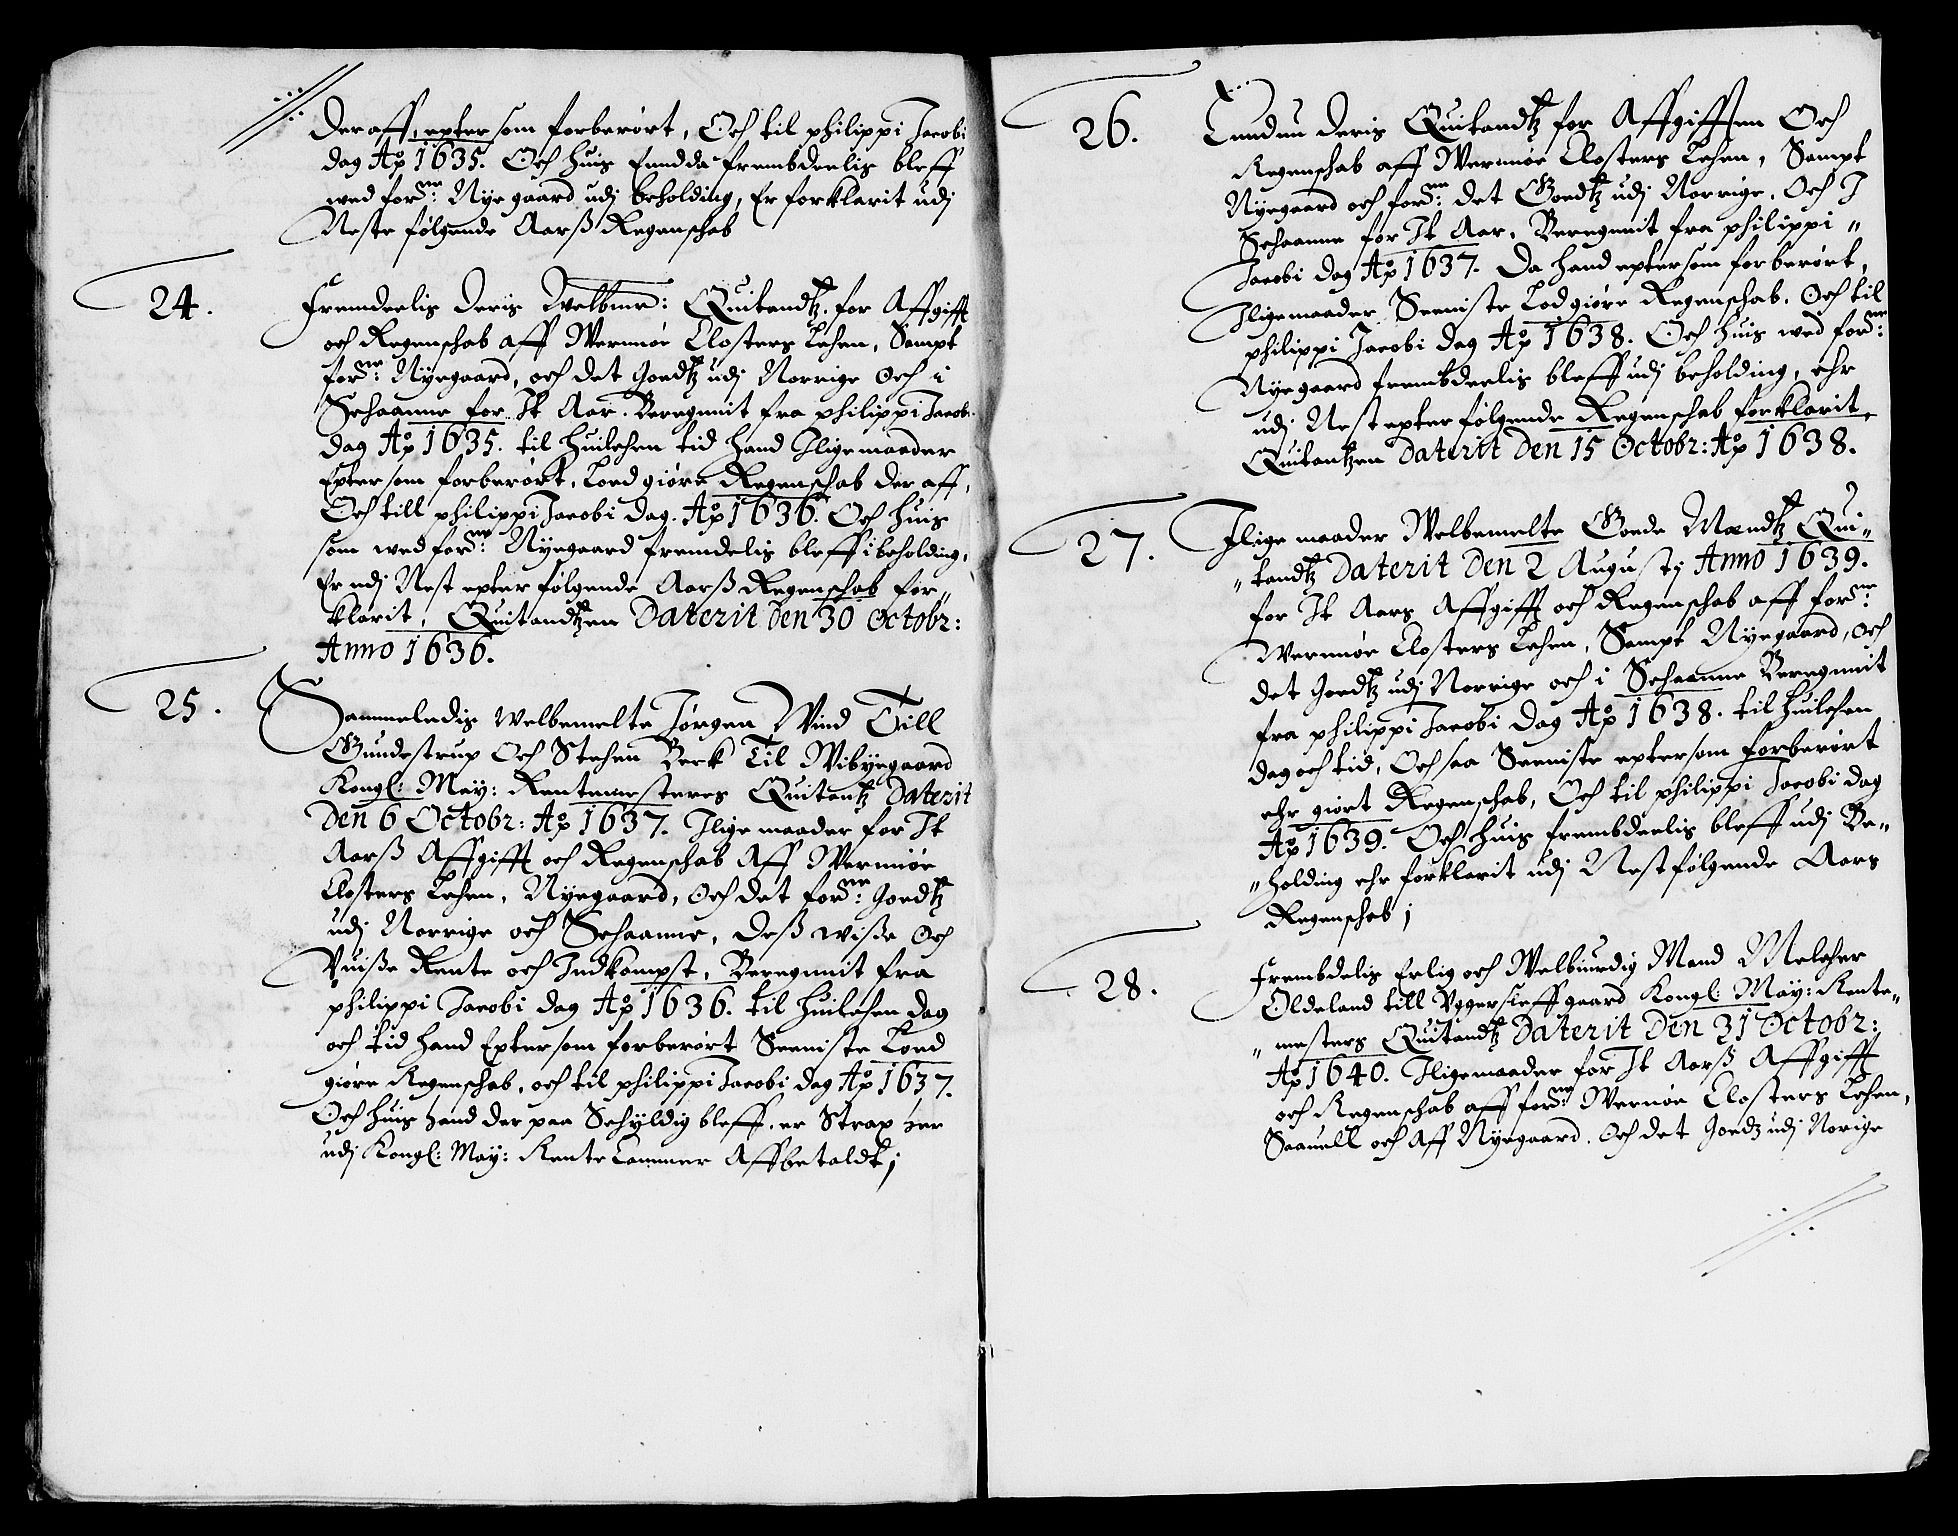 Der aff, epter som forberørt, Och til philippi Jacobi
dag Ao 1635. Och huis Enndda frembdeelis bleff
wed fordne: Nyegaard udj beholding, Er forklarit udj
Neste følgende Aarß Regenschab
24. Fremdeelis Deris Welbmd: Quitandtz. for Affgifft
och Regenschab aff Wernnøe Closters Lehen, Sampt
fordne: Nyegaard, och det Goedtz udj Norrige Och i
Schaanne for It Aar. Beregnnit fra philippi Jacobi
dag Ao 1635. til huilchen tid hand Iligemaader
Epter som forberørt, Loed giøre Regenschab der aff,
Och till philippi Jacobi dag. Ao 1636. Och huis
som wed fordne: Nyegaard fremdelis bleff i beholding,
Er udj Nest epter følgende Aarß Regenschab for„
klarit, Quitandtzen Daterit Den 30 Octobr:
Anno 1636.
25. Sammeledis Welbemelte Jørgen Wind Till
Gundestrup Och Stehen Beck Til Wibyegaard
Kongl: May: Rentemesteres Quitantz Daterit
Den 6 Octobr: Ao 1637. Ilige maader for It
Aarß Affgifft och Regenschab Aff Wernnøe
Closters Lehen, Nyegaard, Och det fordne: Goedtz
udj Norrige och Schaanne, Deß wiße Och
Vuiße Rente och Indkompst, Beregnnit fra
philippi Jacobi dag Ao 1636. til huilchen dag
och tid hand Epter som forberørt Seeniste Loed
giøre Regenschab, och til philippi Jacobi dag Ao 1637.
Och huis hand der paa Schyldig bleff, er Strax her
udj Kongl: May: Rente Cammer Affbetaldt j
26. Enndnu Deris Quitandtz for Affgifften Och
Regenschab aff Wernnøe Closters Lehen, Sampt
Nyegaard och fordne: det Goedtz udj Norrige, Och I
Schaanne for It Aar, Beregnnit fra philippi „
Jacobi dag Ao 1637. Da hand epter som forberørt,
Iligemaader Seeniste Lod giøre Regenschab. Och til
philippi Jacobi dag Ao 1638. Och huis wed fordne:
Nyegaard frembdeelis bleff udj beholding, ehr
udj Nest epter følgende Regenschab forklarit,
Quitantzen Daterit Den 15 Octobr: Ao 1638.
27. Ilige maader Welbemelte Goede Mændtz Qui„
„tandtz Daterit Den 2 Augustj Anno 1639.
for It Aars Affgifft och Regenschab aff fordne:
Wernnøe Closters Lehen, Sampt Nyegaard, och
det Goedtz udj Norrige och i Schaanne Beregnnit
fra philippi Jacobi Dag Ao 1638. til huilchen
dag och tid, Och saa Seeniste epter som forberørt
ehr giort Regenschab, Och til philippi Jacobi dag
Ao 1639. Och huis frembdeelis bleff udj Be„
„holding ehr forklarit udj Nest følgende Aars
Regenschab j
28. Frembdelis Erlig och Welbiurdig Mand Melcher
Oldeland till Vggersleffgaard Kongl: May: Rente„
„mesters Quitandtz Daterit Den 31 Octobr:
Ao 1640. Iligemaader for It Aarß Affgifft
och Regenschab aff fordne: Wernøe Closters Lehen,
Saauell och Aff Nyegaard. Och det Goedz udj Norige